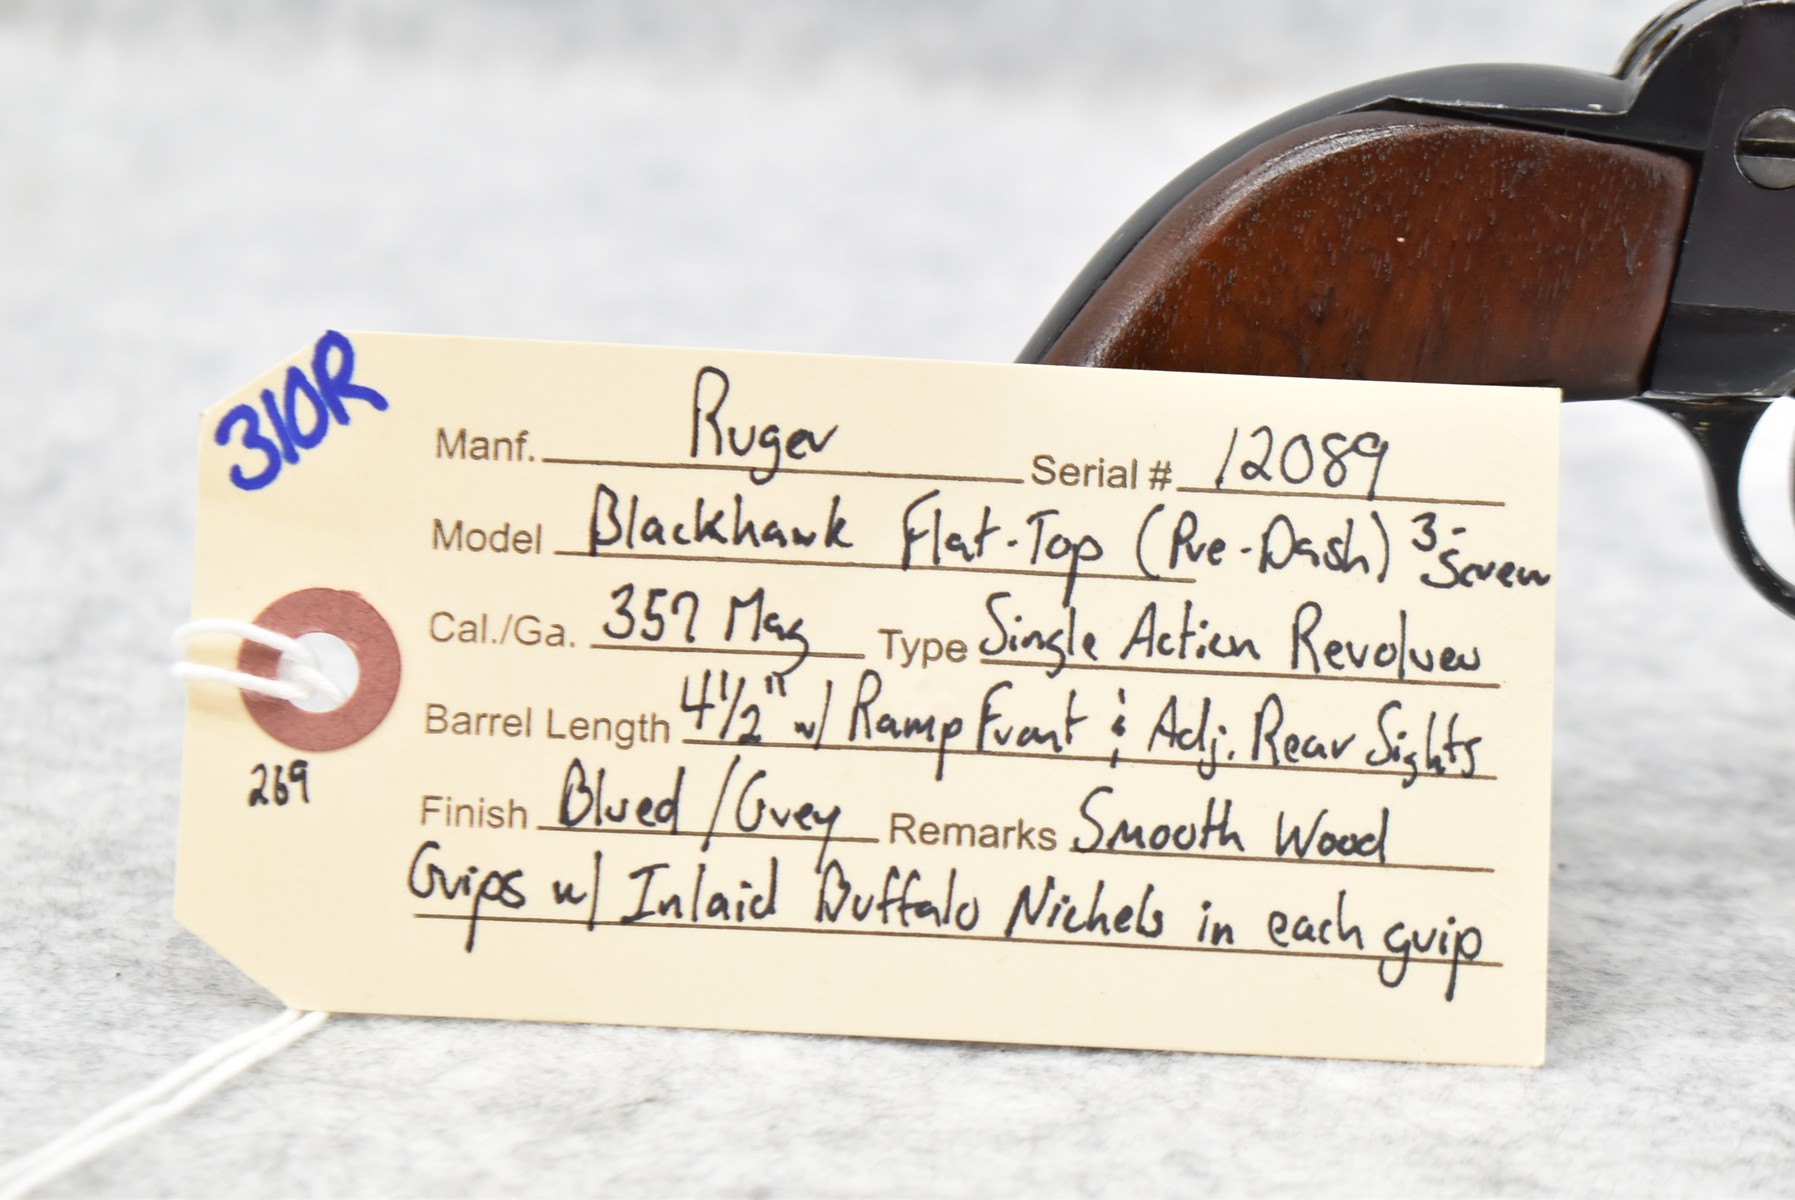 310R
Manf. Ruger Serial # 12089
Model Blackhawk Flat-Top (Pre-Dash) 3-Screw
Cal./Ga. 357 Mag Type Single Action Revolver
Barrel Length 4 1/2" w/ Ramp Front & Adj. Rear Sights
269
Finish Blued / Grey Remarks Smooth Wood
Grips w/ Inlaid Buffalo Nickels in each grip